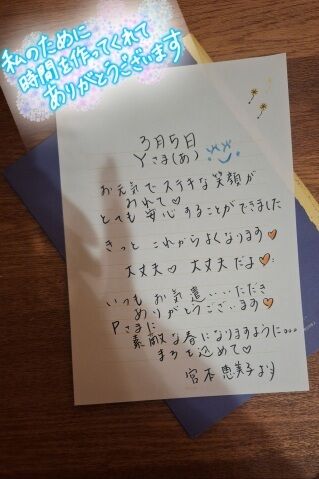 私のために
時間を作ってくれて
ありがとうございます
3月5日
Yさま(あ)
お元気でステキな笑顔が
とても安心することができました
きっと これからよくなります
大丈夫♡ 大丈夫だよ
いつも お気遣い...ただき
ありがとうございます
Pさまに
素敵な春になりますように...
宮本恵美子より